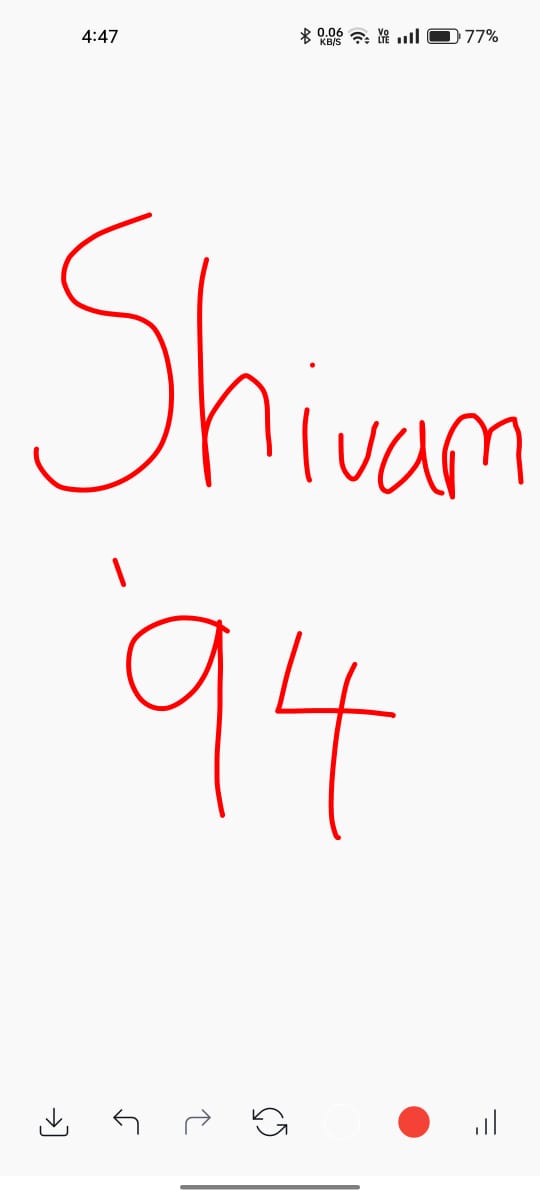 4:47 0.06 KB/S Vo LTE 77%
Shivam
'94